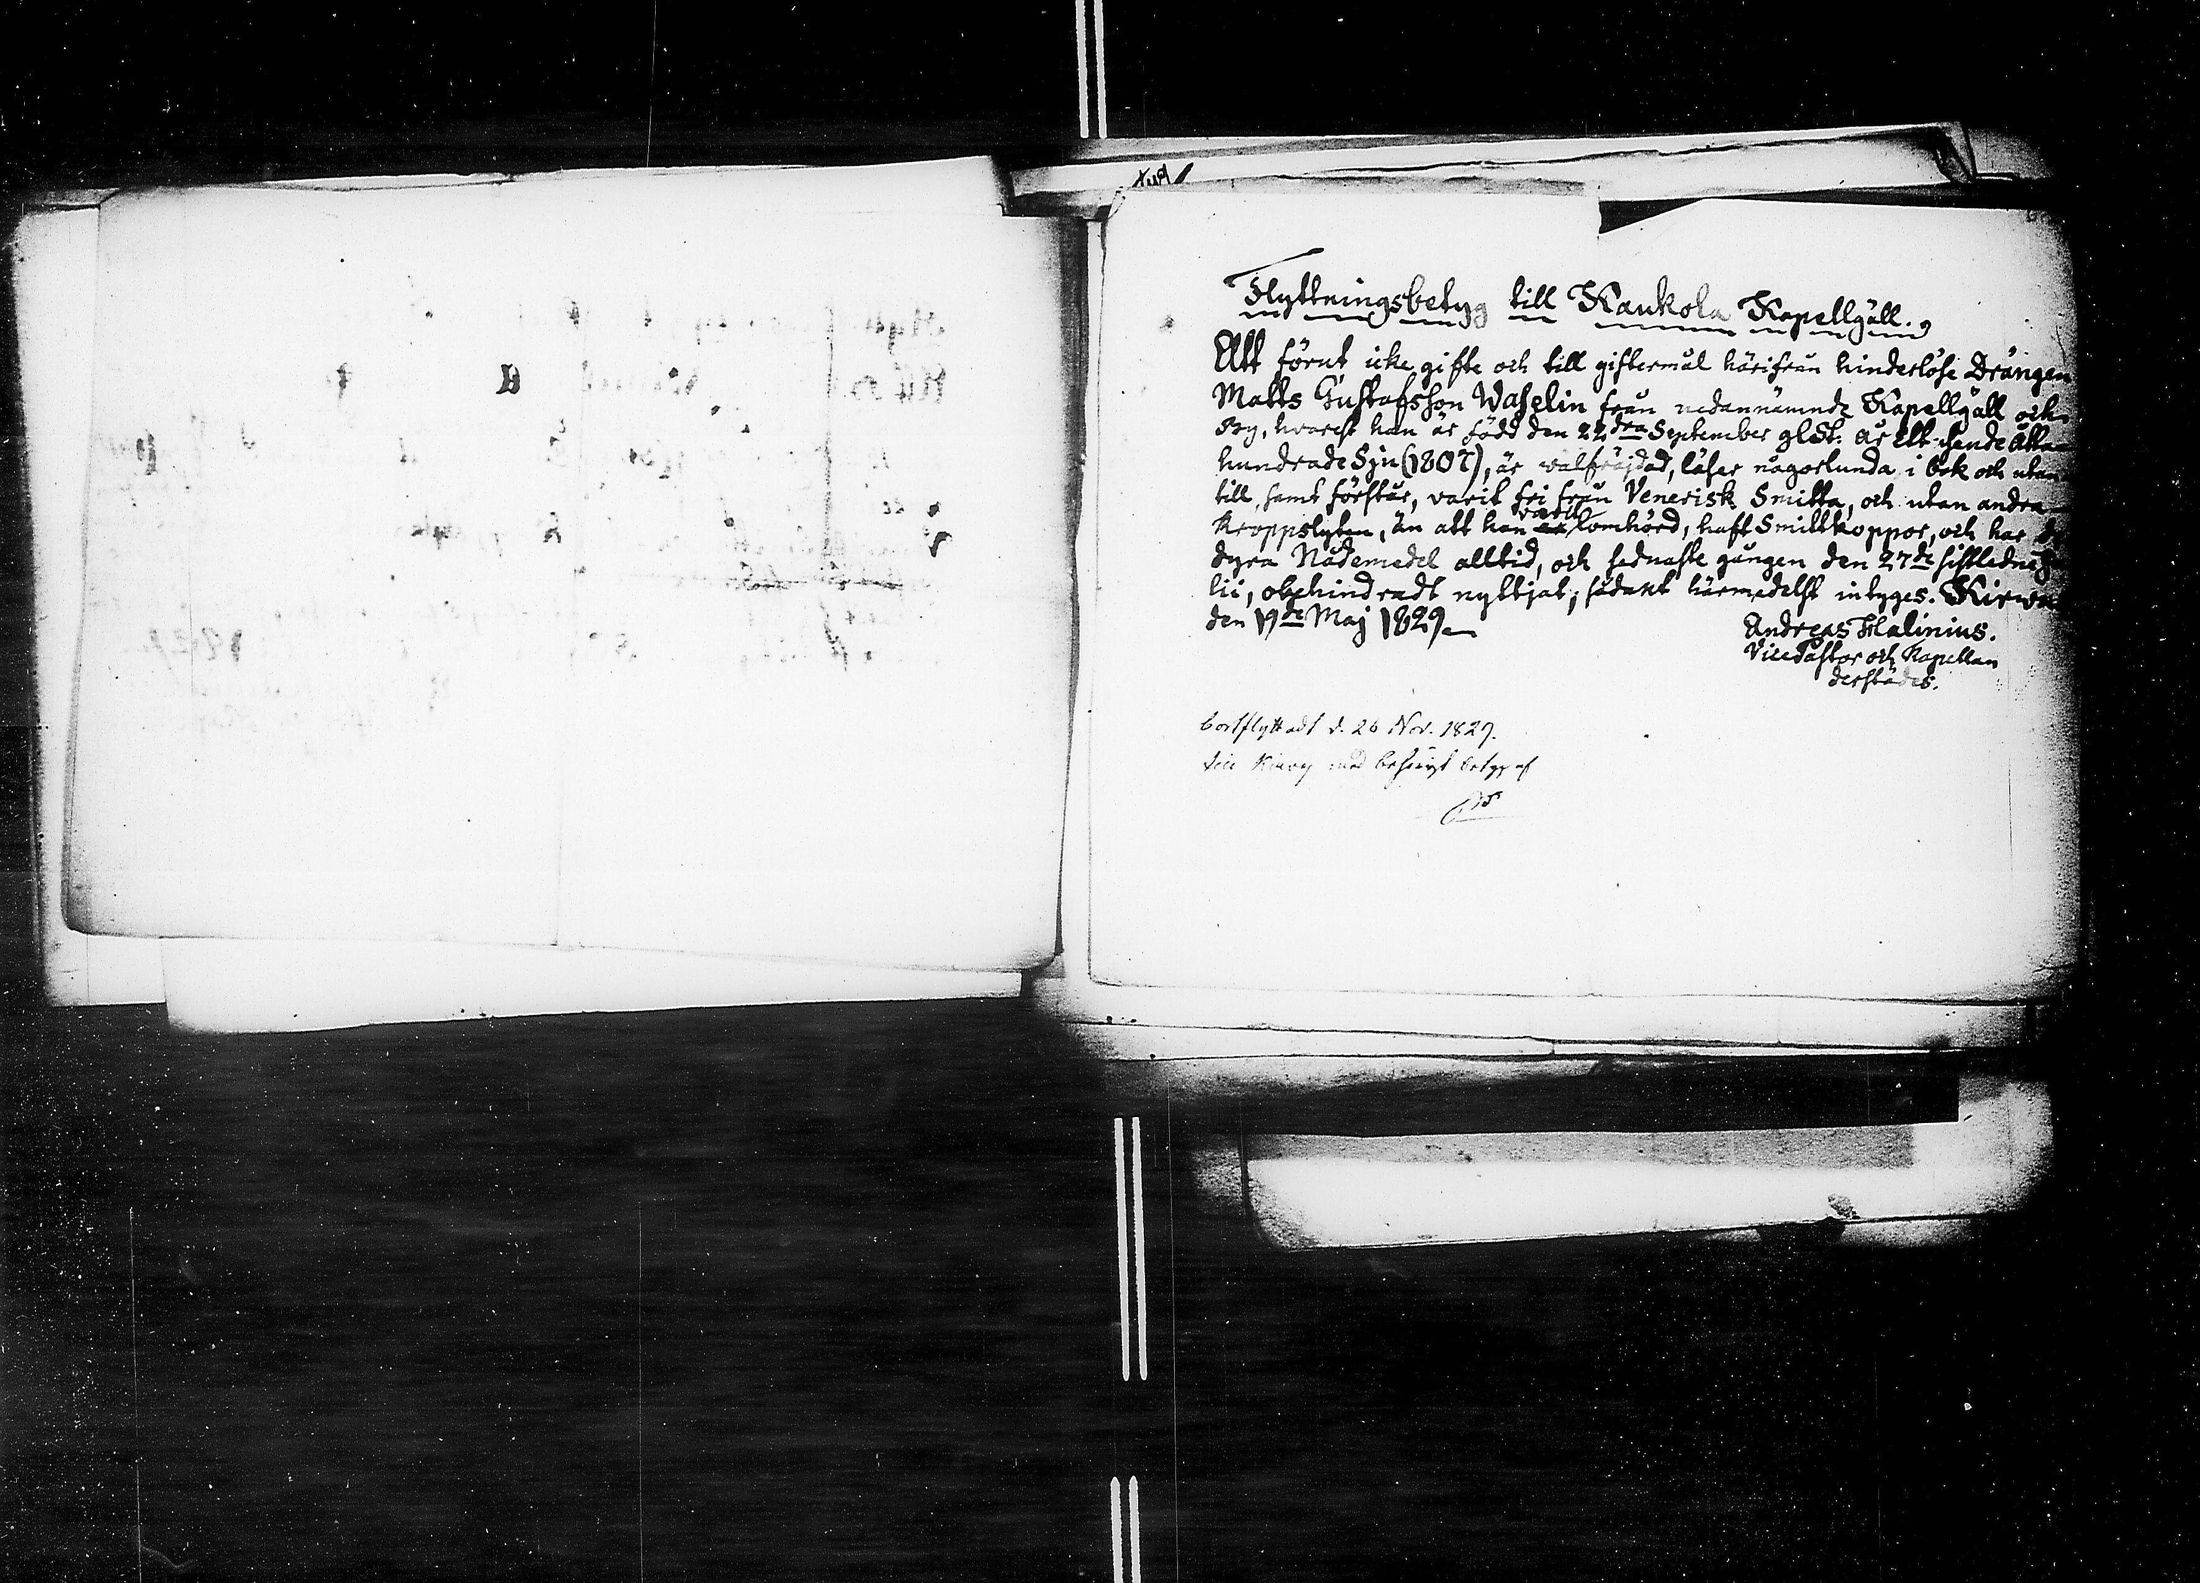 Flyttningsbetyg till Kaukola Kapellgäll.
Att förut icke gifte och till giftermål härifrån hinderlöse Drängen
Matts Gustafsson Waselin från nedannämnde Kapellgäll och
By, hvarest han är född den 22dra September gl. St. år Ett-tusende Åtta
hundrade Sju (1807), är välfräjdad, läser någorlunda i bok och utan
till, samt förstår, varit fri från Venerisk Smitta, och utan andra
Kroppslyten, än att han varit lomhörd, haft Smittkoppor, och har
dyra Nådemedel alltid, och sednaste gången den 27de sistledne
lii, obehindradt nyttjat; sådant härmedelst intyges. Kirwu
den 19de Maj 1829.
Andreas Malinius.
Vice Pastor och Kapellan
derstädes.
bortflyttadt d. 26 Nov. 1829.
till Kirvu med behörigt betyg af